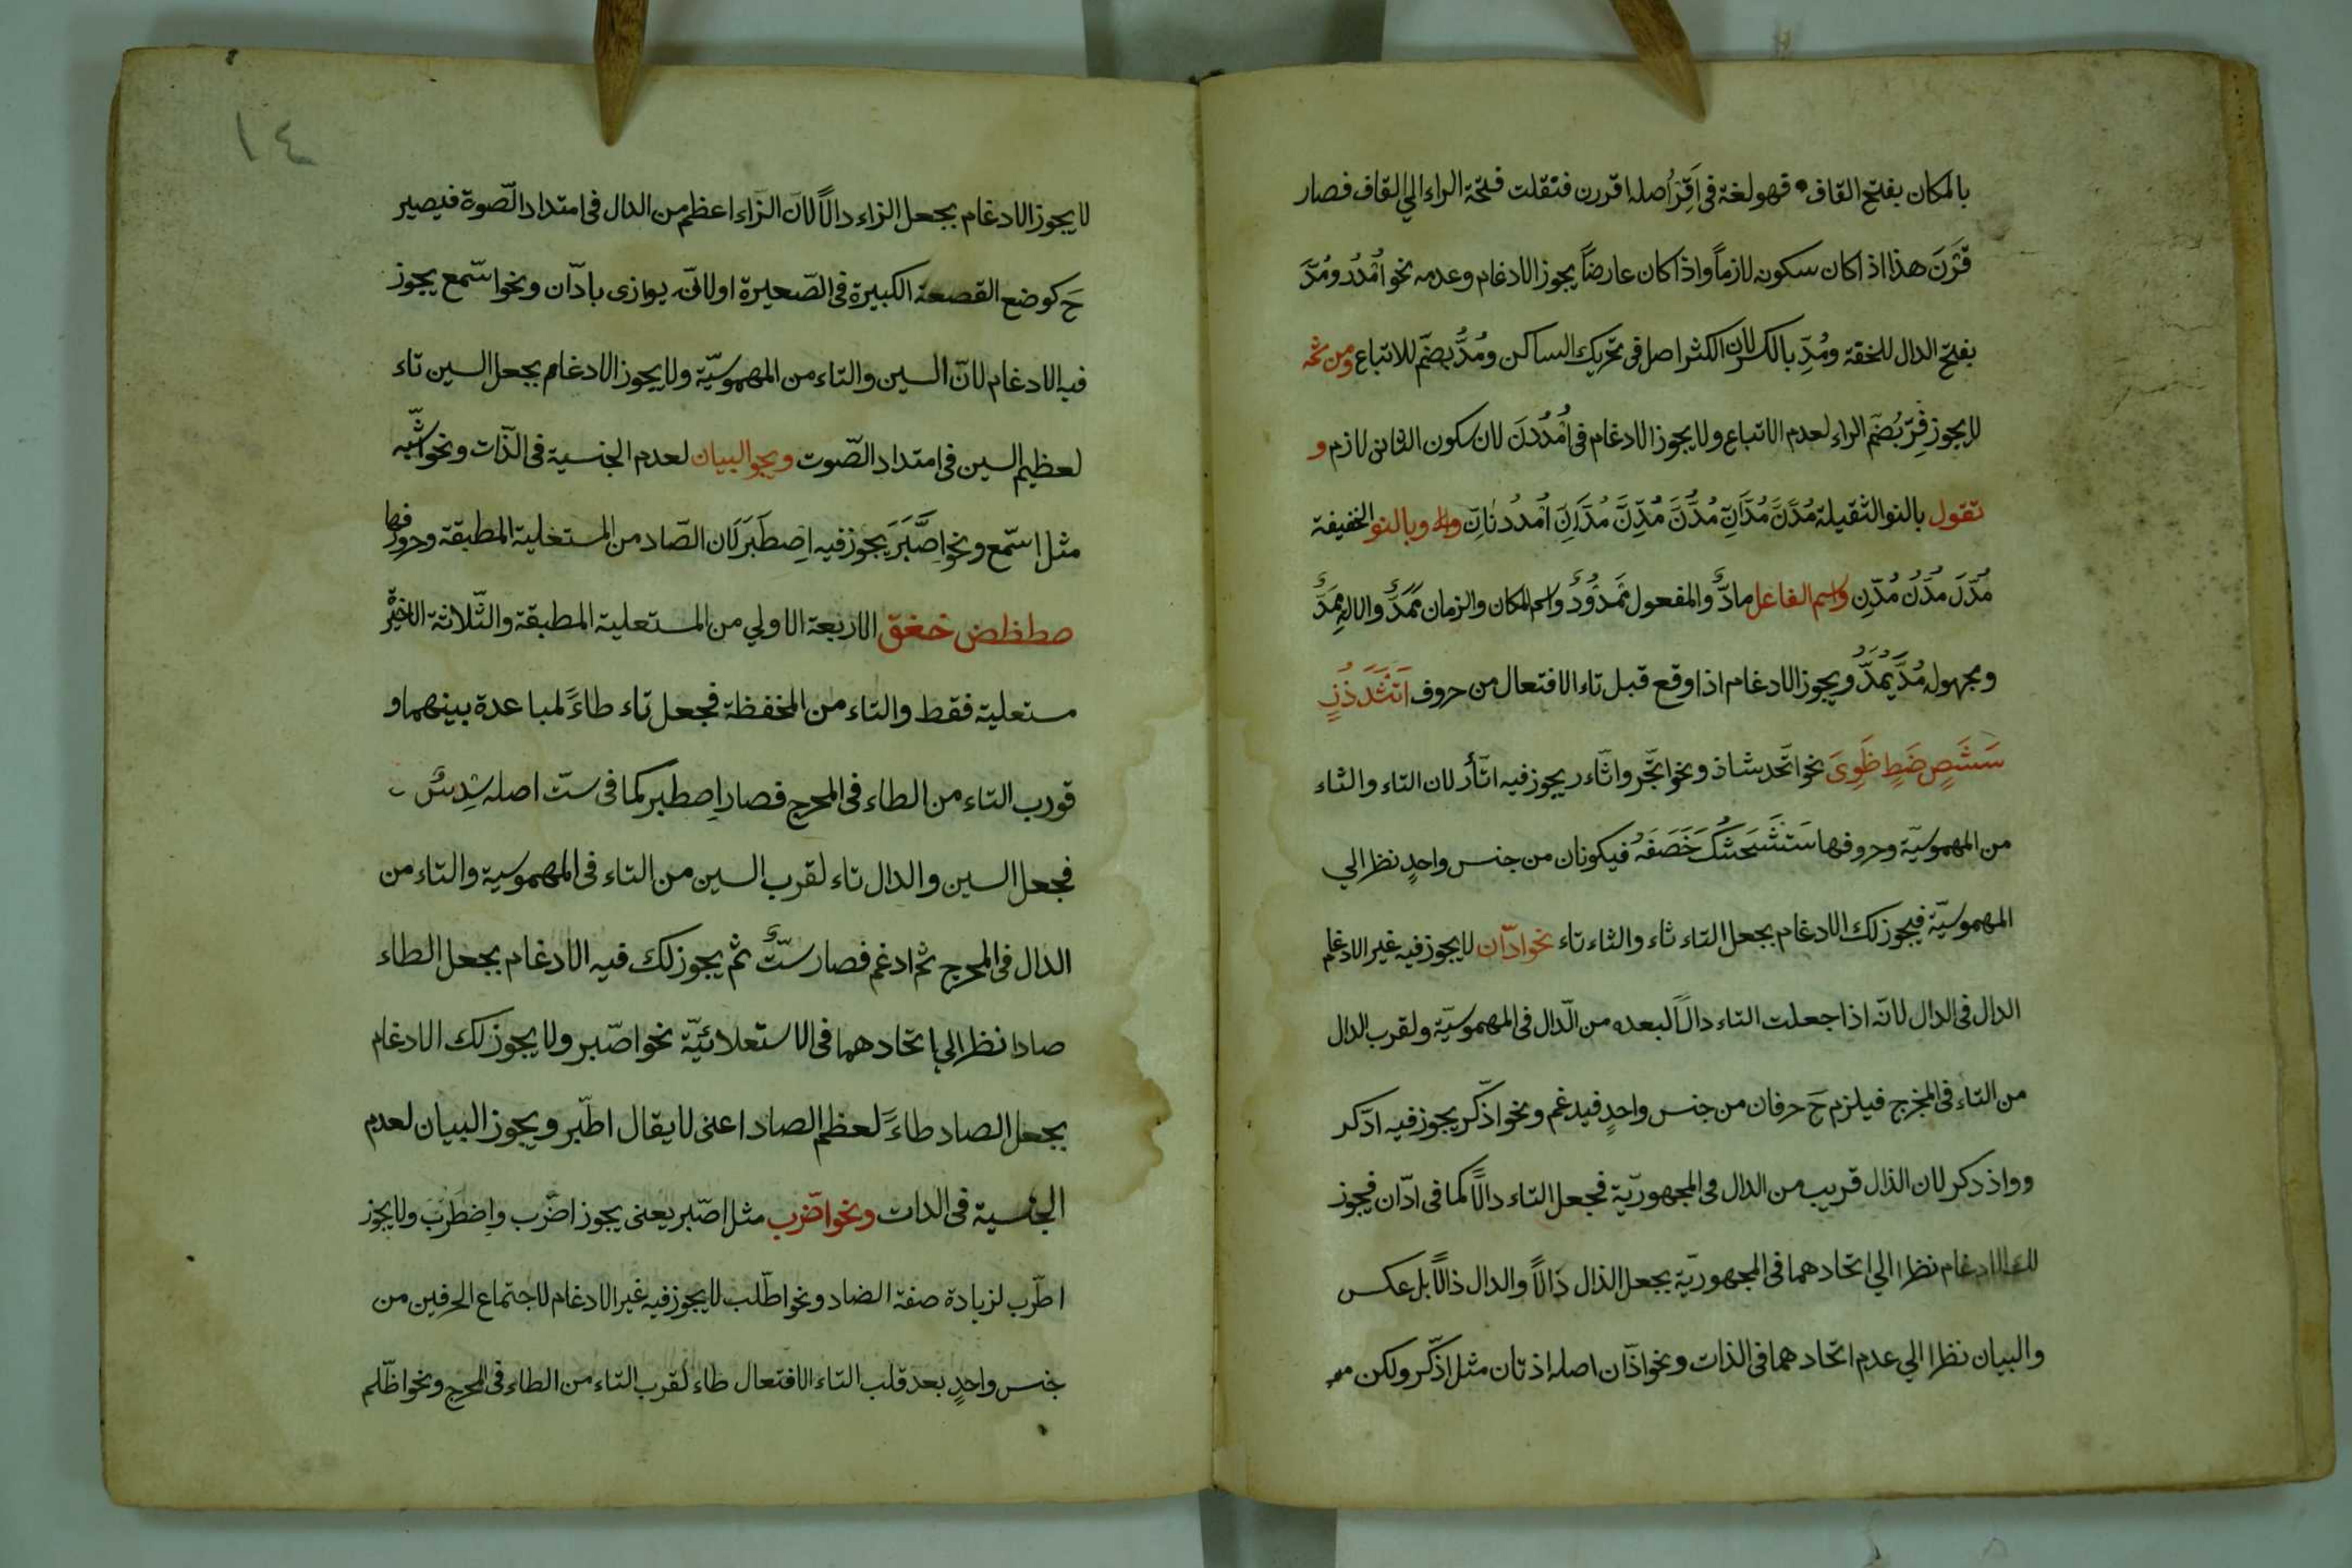 بالمكان بفتح القاف قهو لغة فى اَقِرَ اُصله اقررن فنقلت فتحة الراء الي القاف فصار
قَرْنَ هذا اذا كان سكونه لازماً واذا كان عارضاً يجوز الادغام وعدمه نخو اُمْدُدْ ومُدَّ
بفتح الدال للخفة ومُدِّ بالكسر لان الكثر اصل فى تحريك الساكن ومُدُّ بضم للاتباع ومن ثمه
لا يجوز فِرّ بُضمّ الراء لعدم الاتباع ولا يجوز الادغام فى اُمْدُدْنَ لان سكون الثانى لازم و
تقول بالنو الثقيلة مُدَّنَّ مُدَّانِّ مُدُّنَّ مُدِّنَّ مُدَّانِّ اُمْدُدْنَانِّ وبالنو الخفيفة
مُدَّنْ مُدُّنْ مُدِّنْ واسم الفاعل مادٌّ والمفعول مَمْدُوْدٌ واسم المكان والزمان مَمَدٌّ والاله مِمَدٌّ
ومجهوله مُدَّ يُمَدُّ ويجوز الادغام اذا وقع قبل تاء الافتعال من حروف اَتَثَدَذُزٍ
سَشَصٍ ضَطٍ ظَوِىَ نخو اتّخد شاذ ونخو اتّجر واثّاء ر يجوز فيه اتّأر لان التاء والثاء
من المهموسيّة وحروفها سَتَشْحَثُكَ خَصَفَهْ فيكونان من جنس واحدٍ نظر الي
المهموسيّة فيجوز لك الادغام بجعل التاء ثاء والثاء تاء نخو ادّان لا يجوز فيه غير الادغام
الدال فى الدال لانّه اذا جعلت التاء دالاً لبعده من الدّال فى المهموسيّة ولقرب الدال
من التاء فى المخرج فيلزم حَ حرفان من جنس واحدٍ فيدغم ونخو اذّكر يجوز فيه ادّكر
وواذ دكر لان الذال قريب من الدال فى المجهوريّة فجعل التاء دالاً كما فى ادّان فيجوز
لك الادغام نظرا الي اتحادهما فى المجهوريّة بجعل الذال دالاً والدال ذالاً بل عكس
والبيان نظرا الي عدم اتحادهما فى الذات ونخو اذّان اصله اذ تان مثل اذّكر ولكن
١٤
لا يجوز الادغام بجعل الزاء دالاً لانّ الزّاء اعظم من الدال فى امتداد الصّوة فيصير
حَ كوضع القصعة الكبيرة فى الصّعيرة اولانّه يوازى بادّان ونخو اسّمع يجوز
فيه الادغام لانّ السين والتاء من المهموسيّة ولا يجوز الادغام بجعل السين تاء
لعظيم السين فى امتداد الصّوت ويجو البيان لعدم الجنسية فى الذّات ونخو اشّبه
مثل اسّمع ونخو اِصَّبَرَ يَجوز فيه اِصطَبَرَ لَان الصّاد من المستغلية المطبقة وحروفها
صطظض خغق الاربعة الاولي من المستعلية المطبقة والثّلاثة الاخيرة
مستعلية فقط والتاء من المخفظة فجعل تاء طاءً لمباعدة بينهما و
قورب التاء من الطاء فى المحرج فصار اِصطبر كما فى ستّ اصله سِدِسٌ
فجعل السين والدال تاء لقرب السين من التاء فى المهموسية والتاء من
الدال فى المحرج ثم ادغم فصار ستٌّ ثم يجوز لك فيه الادغام بجعل الطاء
صادا نظر الي اتحادهما فى الاستعلائيّة نخو اصّبر ولا يجوز لك الادغام
بجعل الصاد طاءً لعظم الصاد اعنى لا يقال اطّبر ويجوز البيان لعدم
الجنسية فى الدات ونخو اضّرب مثل اصّبر يعنى يجوز اضّرب واِضطَرَبَ ولا يجوز
اطّرب لزيادة صفة الضاد ونخو اطّلب لا يجوز فيه غير الادغام لاجتماع الحرفين من
جنس واحدٍ بعد قلب التاء الافتعال طاء لقرب التاء من الطاء فى المحرج ونخو اظّلم